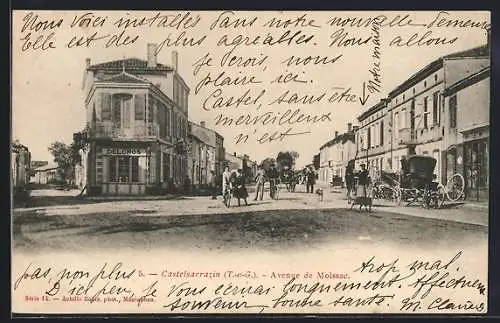 Nous Voici installés Dans notre nouvelle Demeure
Elle est Des plus agréables. Nous allons
je crois, nous
plaire ici.
Castel, sans être
merveilleux
n'est
pas non plus
Notre maison
DELCROS
5. — Castelsarrazin (T.-et-G.). - Avenue de Moissac.
trop mal.
D'ici peu, Je vous écrirai longuement. Affectueux
Souvenir à toute notre santé.
Série 14. — phot.,